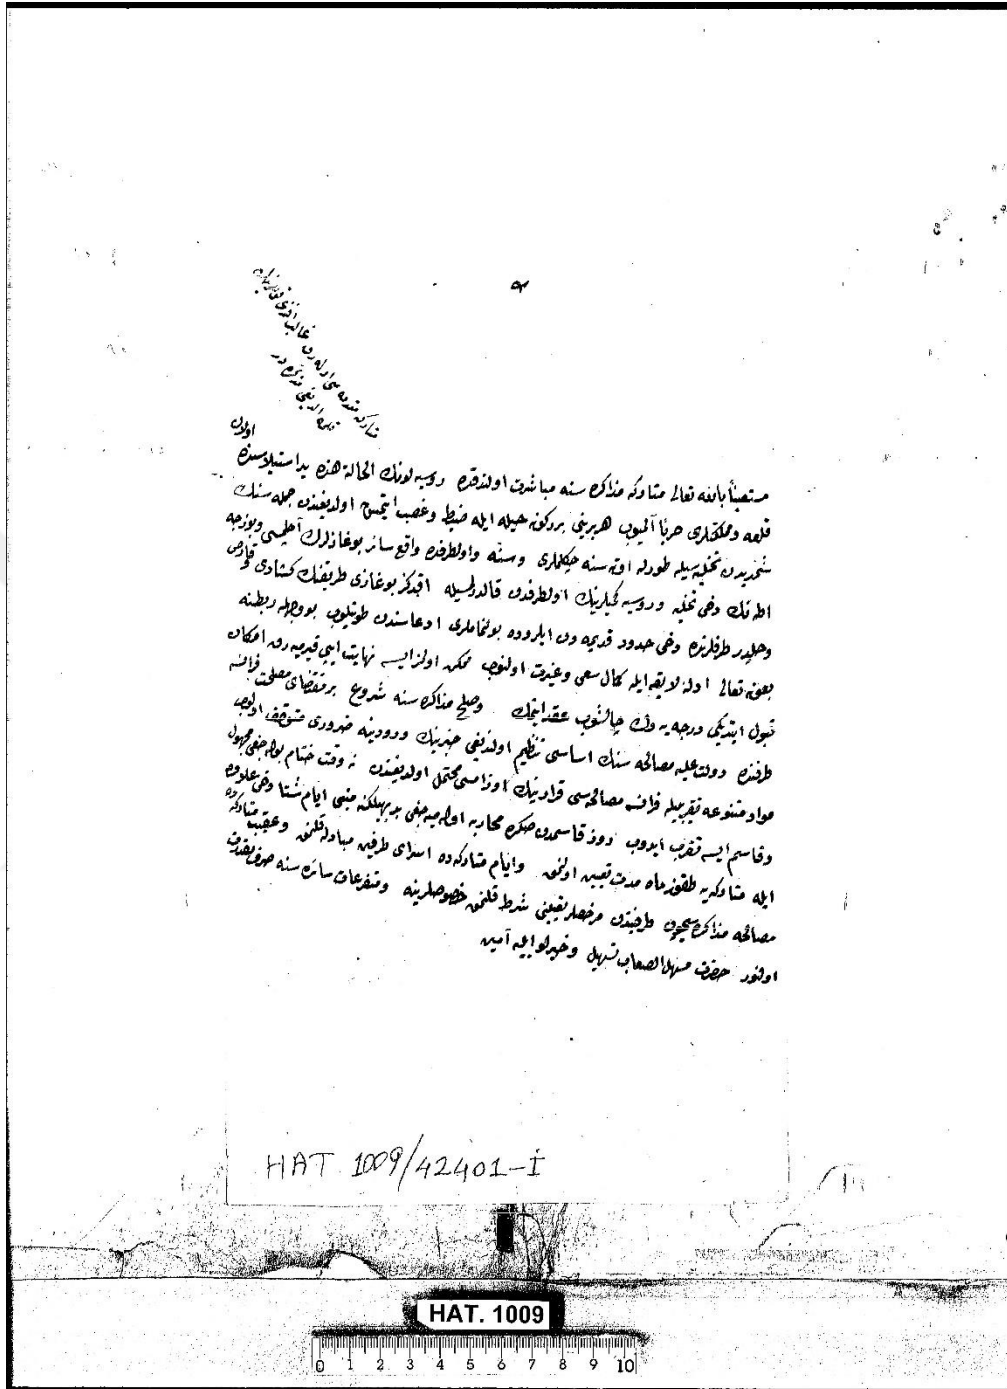 متاركه مقدمه سی اوله رق غالب افندی
مستعیناً بالله تعالی متاركه مذاكره سنه مباشرت اولندقده روسیه لونك الحالة هذه ید استیلاسنده اولان
قلعه و مملكتلری حرباً آلمیوب هربرینی بر درلو حیله ایله ضبط و غصب ایتمش اولدیغندن جمله سنك
تخلیه سیله طورله اوته سنه چكلملری وسنّه واولطرفده واقع سائر بوغازلرك آچلمسی وبوزجه
اطه نك دخی تخلیه و روسیه كمیلرینك اولطرفدن قالدرلمسیله آقدكز بوغازی طریقنك كشادی
وچلدر طرفلرنده دخی حدود قدیمه دن ایلروده بولنماملری ادعاسندن طوتیلوب بووجهله ربطنه
بعون تعالی ادله لایقه ایله كمال سعی و غیرت اولنوب ممكن اولمز ایسه نهایت ایبی قیرمیه رق امكان
قبول ایتدیكی درجه یه دك چالشوب عقد ایتمك وصلح مذاكره سنه شروع بر مقتضای مصلحت فرانسه
طرفنده دولت علیه مصالحه سنك اساسی تنظیم اولندیغی خبرینك ورودینه ضروری متوقف اولوب
مواد متنوعه تقریبیله فرانسه مصالحه سی قرارینك اوزامسی محتمل اولدیغندن نه وقت ختام بوله جغی مجهول
وقاسم ایسه تقرب ایدوب روز قاسمدن صكره محاربه اولمیه جغی بدیهی ایام شتا دخی علاوه
ایله متاركه یه طقوز ماه مدت تعیین اولنمق وایام متاركه ده اسرای طرفین مبادله قلنمق وعقب متاركه ده
مصالحه مذاكره سیچون طرفیندن مرخصلر تعیینی شرط قلنمق خصوصلرینه ومتفرعات سائره سنه صرف مقدرت
اولنور حضرت مسهل الصعاب تسهیل و خیرلو ایلیه آمین
HAT 1009/42401-İ
HAT. 1009
0 1 2 3 4 5 6 7 8 9 10